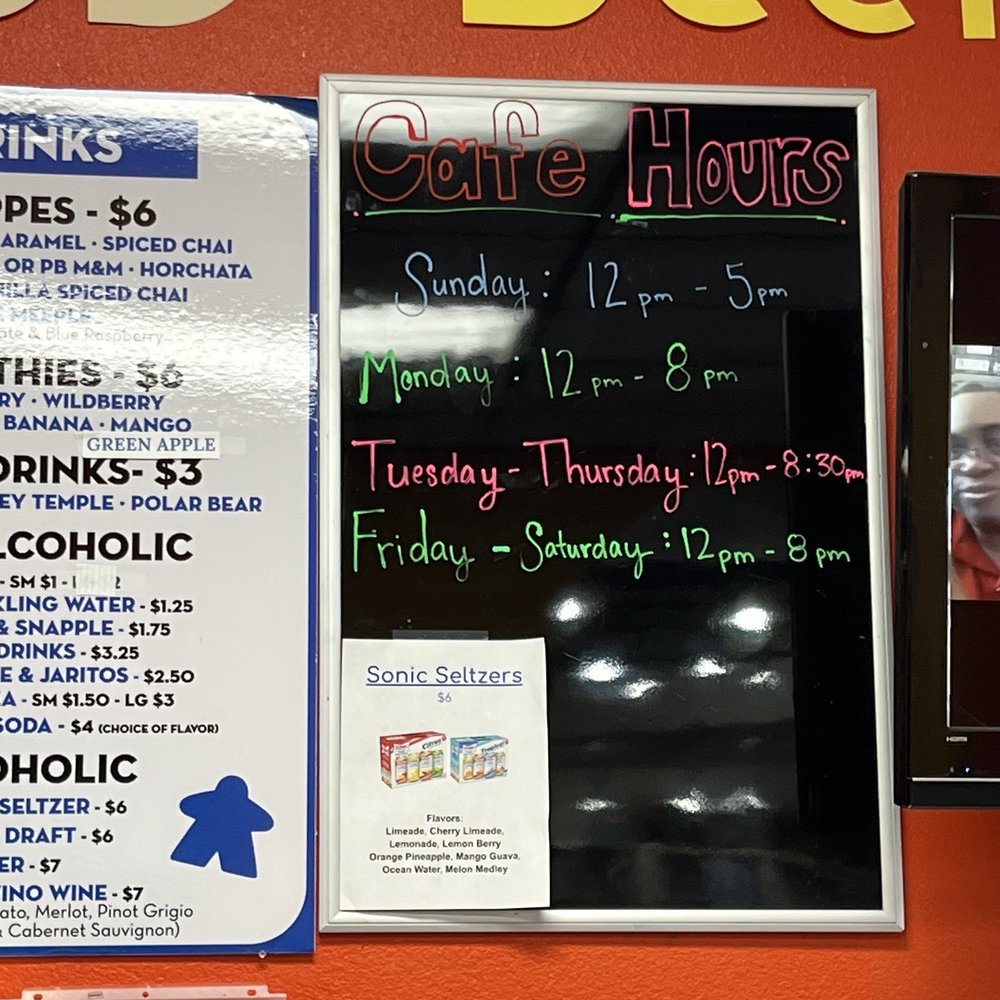 RINKS
PPES - $6
ARAMEL • SPICED CHAI
OR PB M&M • HORCHATA
ILLA SPICED CHAI
MEEPLE
ate & Blue Raspberry
THIES - $6
RY • WILDBERRY
BANANA • MANGO
GREEN APPLE
DRINKS- $3
EY TEMPLE • POLAR BEAR
LCOHOLIC
- SM $1 -
KLING WATER - $1.25
& SNAPPLE - $1.75
DRINKS - $3.25
E & JARITOS - $2.50
A - SM $1.50 - LG $3
SODA - $4 (CHOICE OF FLAVOR)
OHOLIC
SELTZER - $6
DRAFT - $6
ER - $7
INO WINE - $7
ato, Merlot, Pinot Grigio
& Cabernet Sauvignon)
Cafe Hours
Sunday: 12 pm - 5pm
Monday: 12 pm - 8 pm
Tuesday - Thursday: 12pm - 8:30pm
Friday - Saturday: 12 pm - 8 pm
Sonic Seltzers
$6
Citrus
Tropical
Flavors:
Limeade, Cherry Limeade,
Lemonade, Lemon Berry
Orange Pineapple, Mango Guava,
Ocean Water, Melon Medley
HDMI